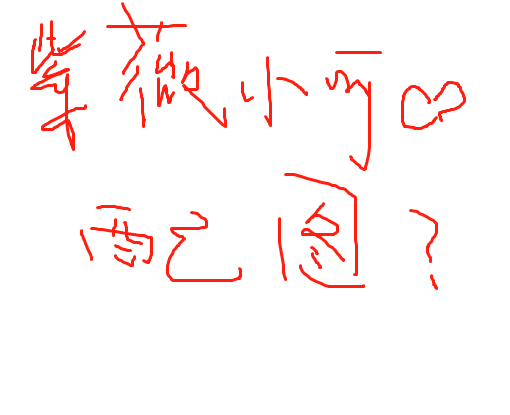 紫薇小可∞
配图?